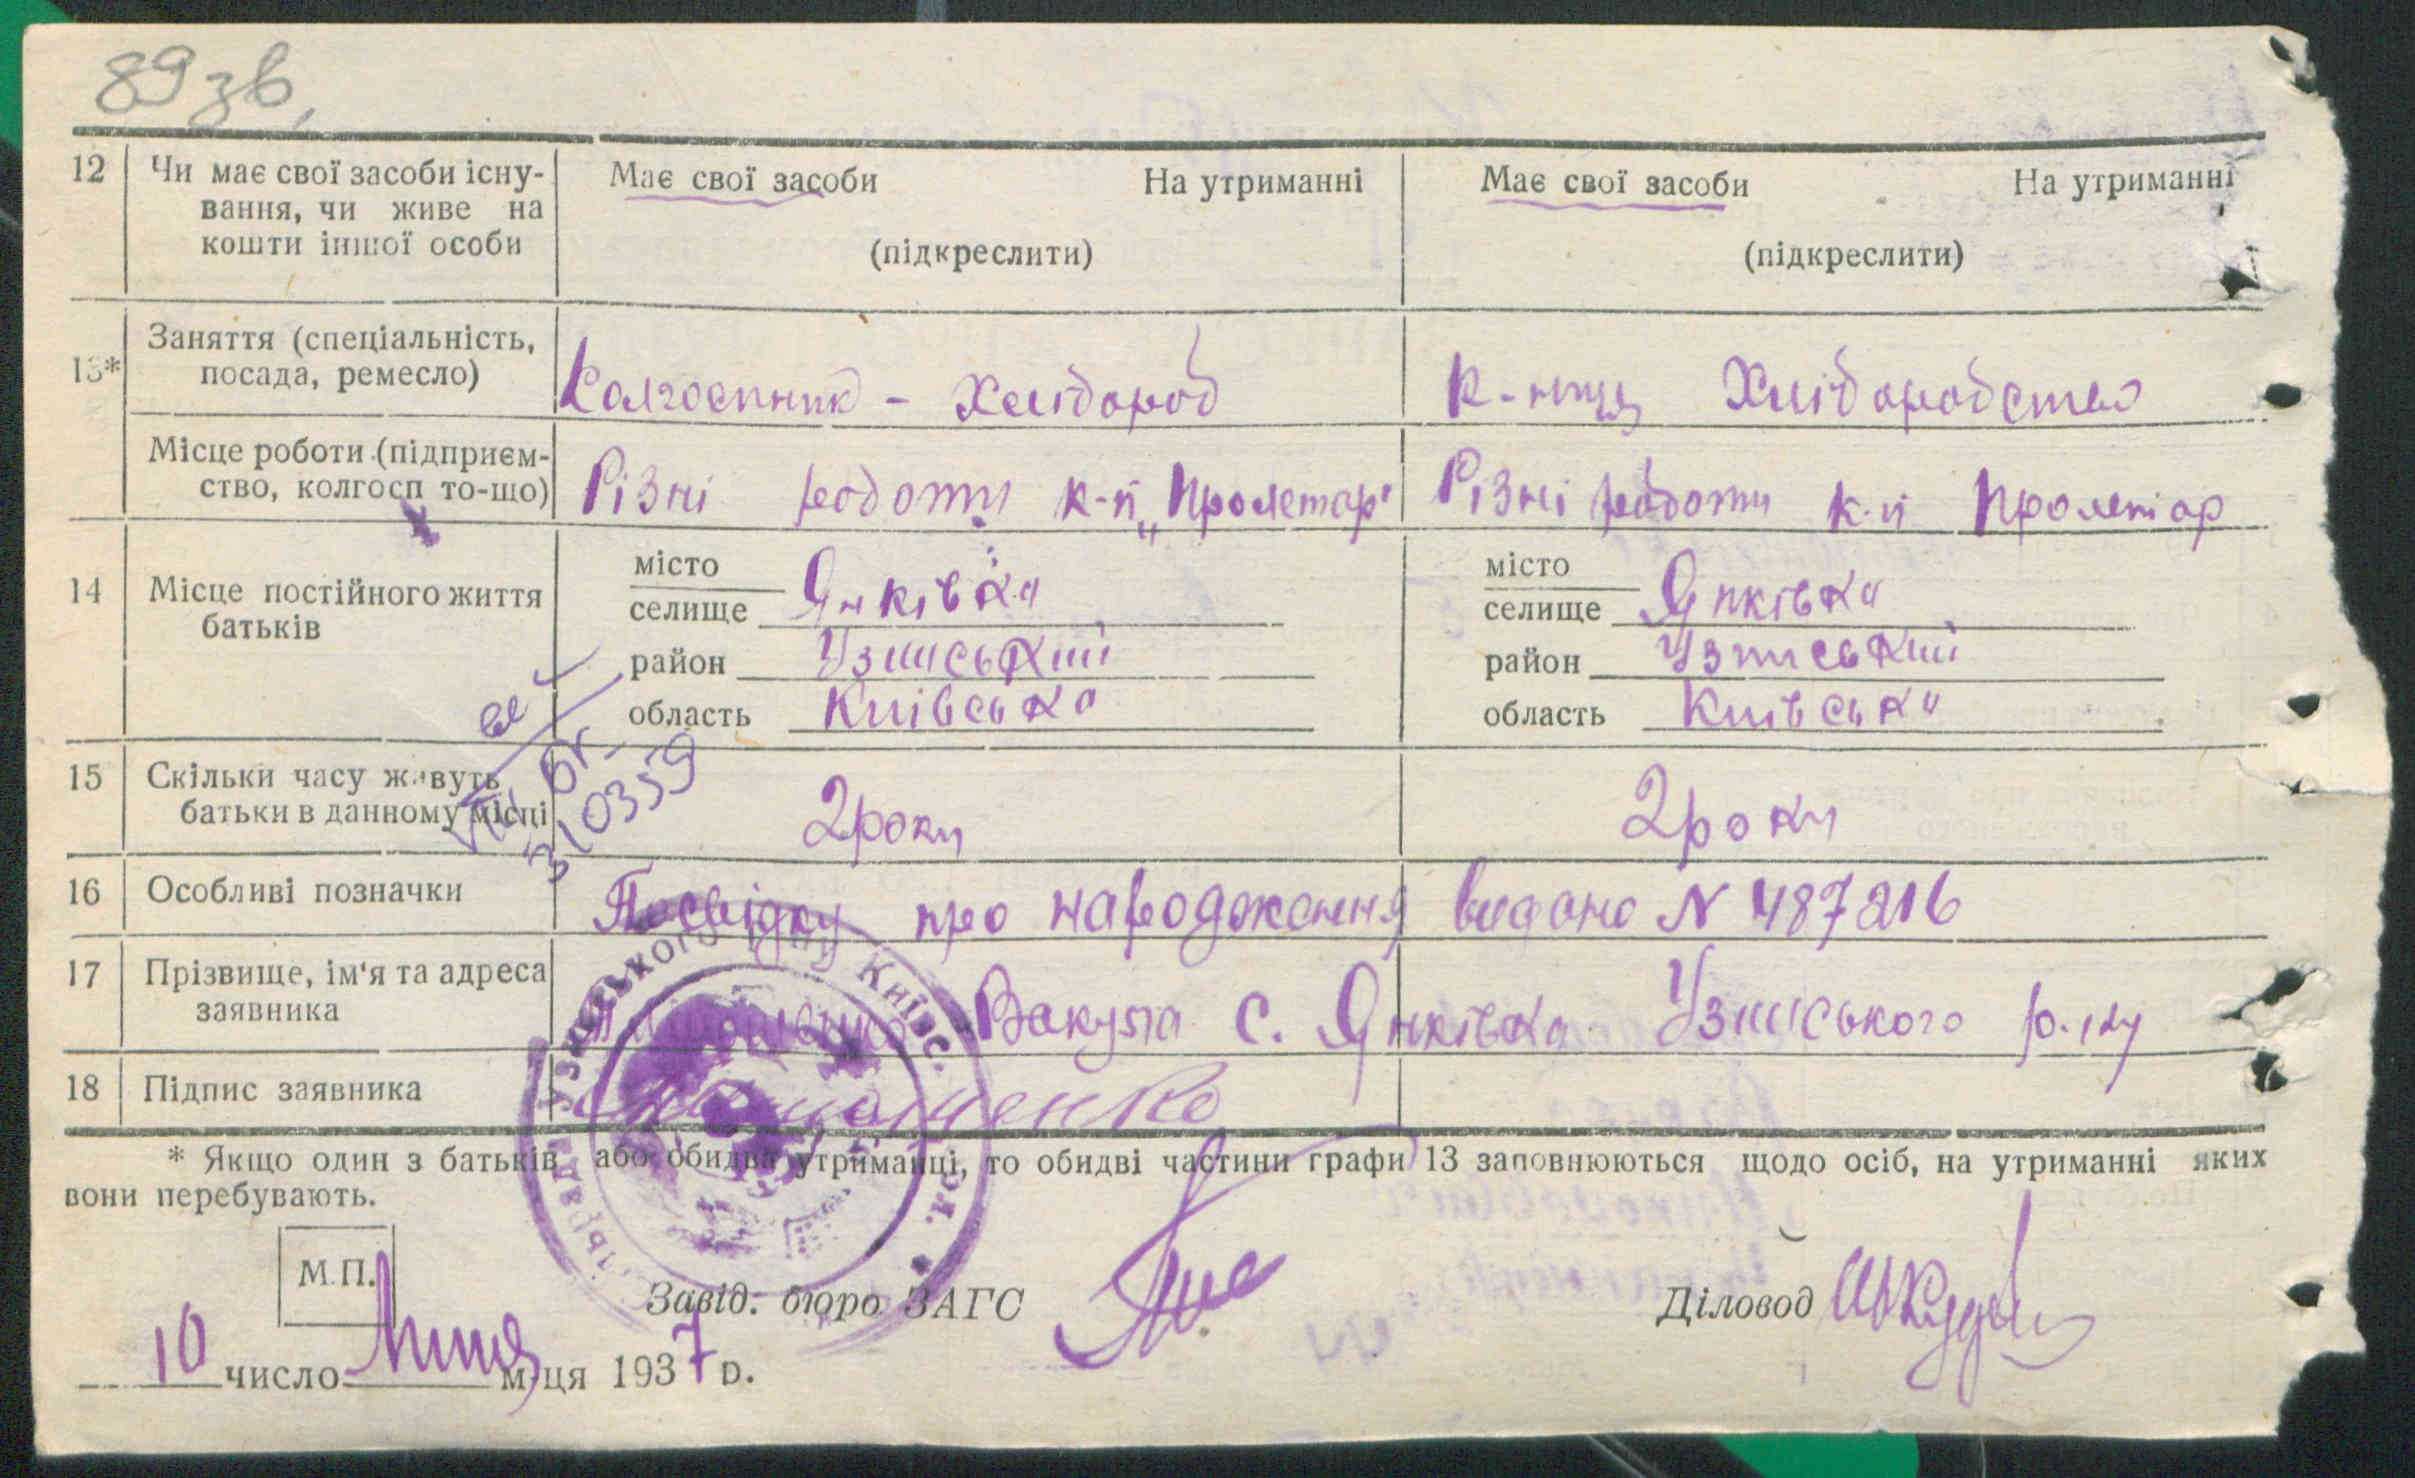 89зв.
12 Чи має свої засоби існу- Має свої засоби На утриманні Має свої засоби На утриманні
вання, чи живе на
кошти іншої особи (підкреслити) (підкреслити)
13* Заняття (спеціальність,
посада, ремесло) Колгоспник - Хлібороб к-ниця Хліборобство
Місце роботи (підприєм-
ство, колгосп то-що) Різні роботи к-п „Пролетар" Різні роботи к-п Пролетар
14 Місце постійного життя
батьків
місто місто
селище Янківка селище Янківка
район Узинський район Узинський
область Київська область Київська
15 Скільки часу живуть
батьки в данному місці 2 роки 2 роки
310359
16 Особливі позначки Посвідку про народження видано N 487216
17 Прізвище, ім'я та адреса
заявника Вакула с. Янківка Узинського р-ну
18 Підпис заявника
* Якщо один з батьків або обидва утриманці, то обидві частини графи 13 заповнюються щодо осіб, на утриманні яких
вони перебувають.
М.П.
Завід. бюро ЗАГС Діловод
10 число Липня м-ця 1937 р.
Узинського Київс.